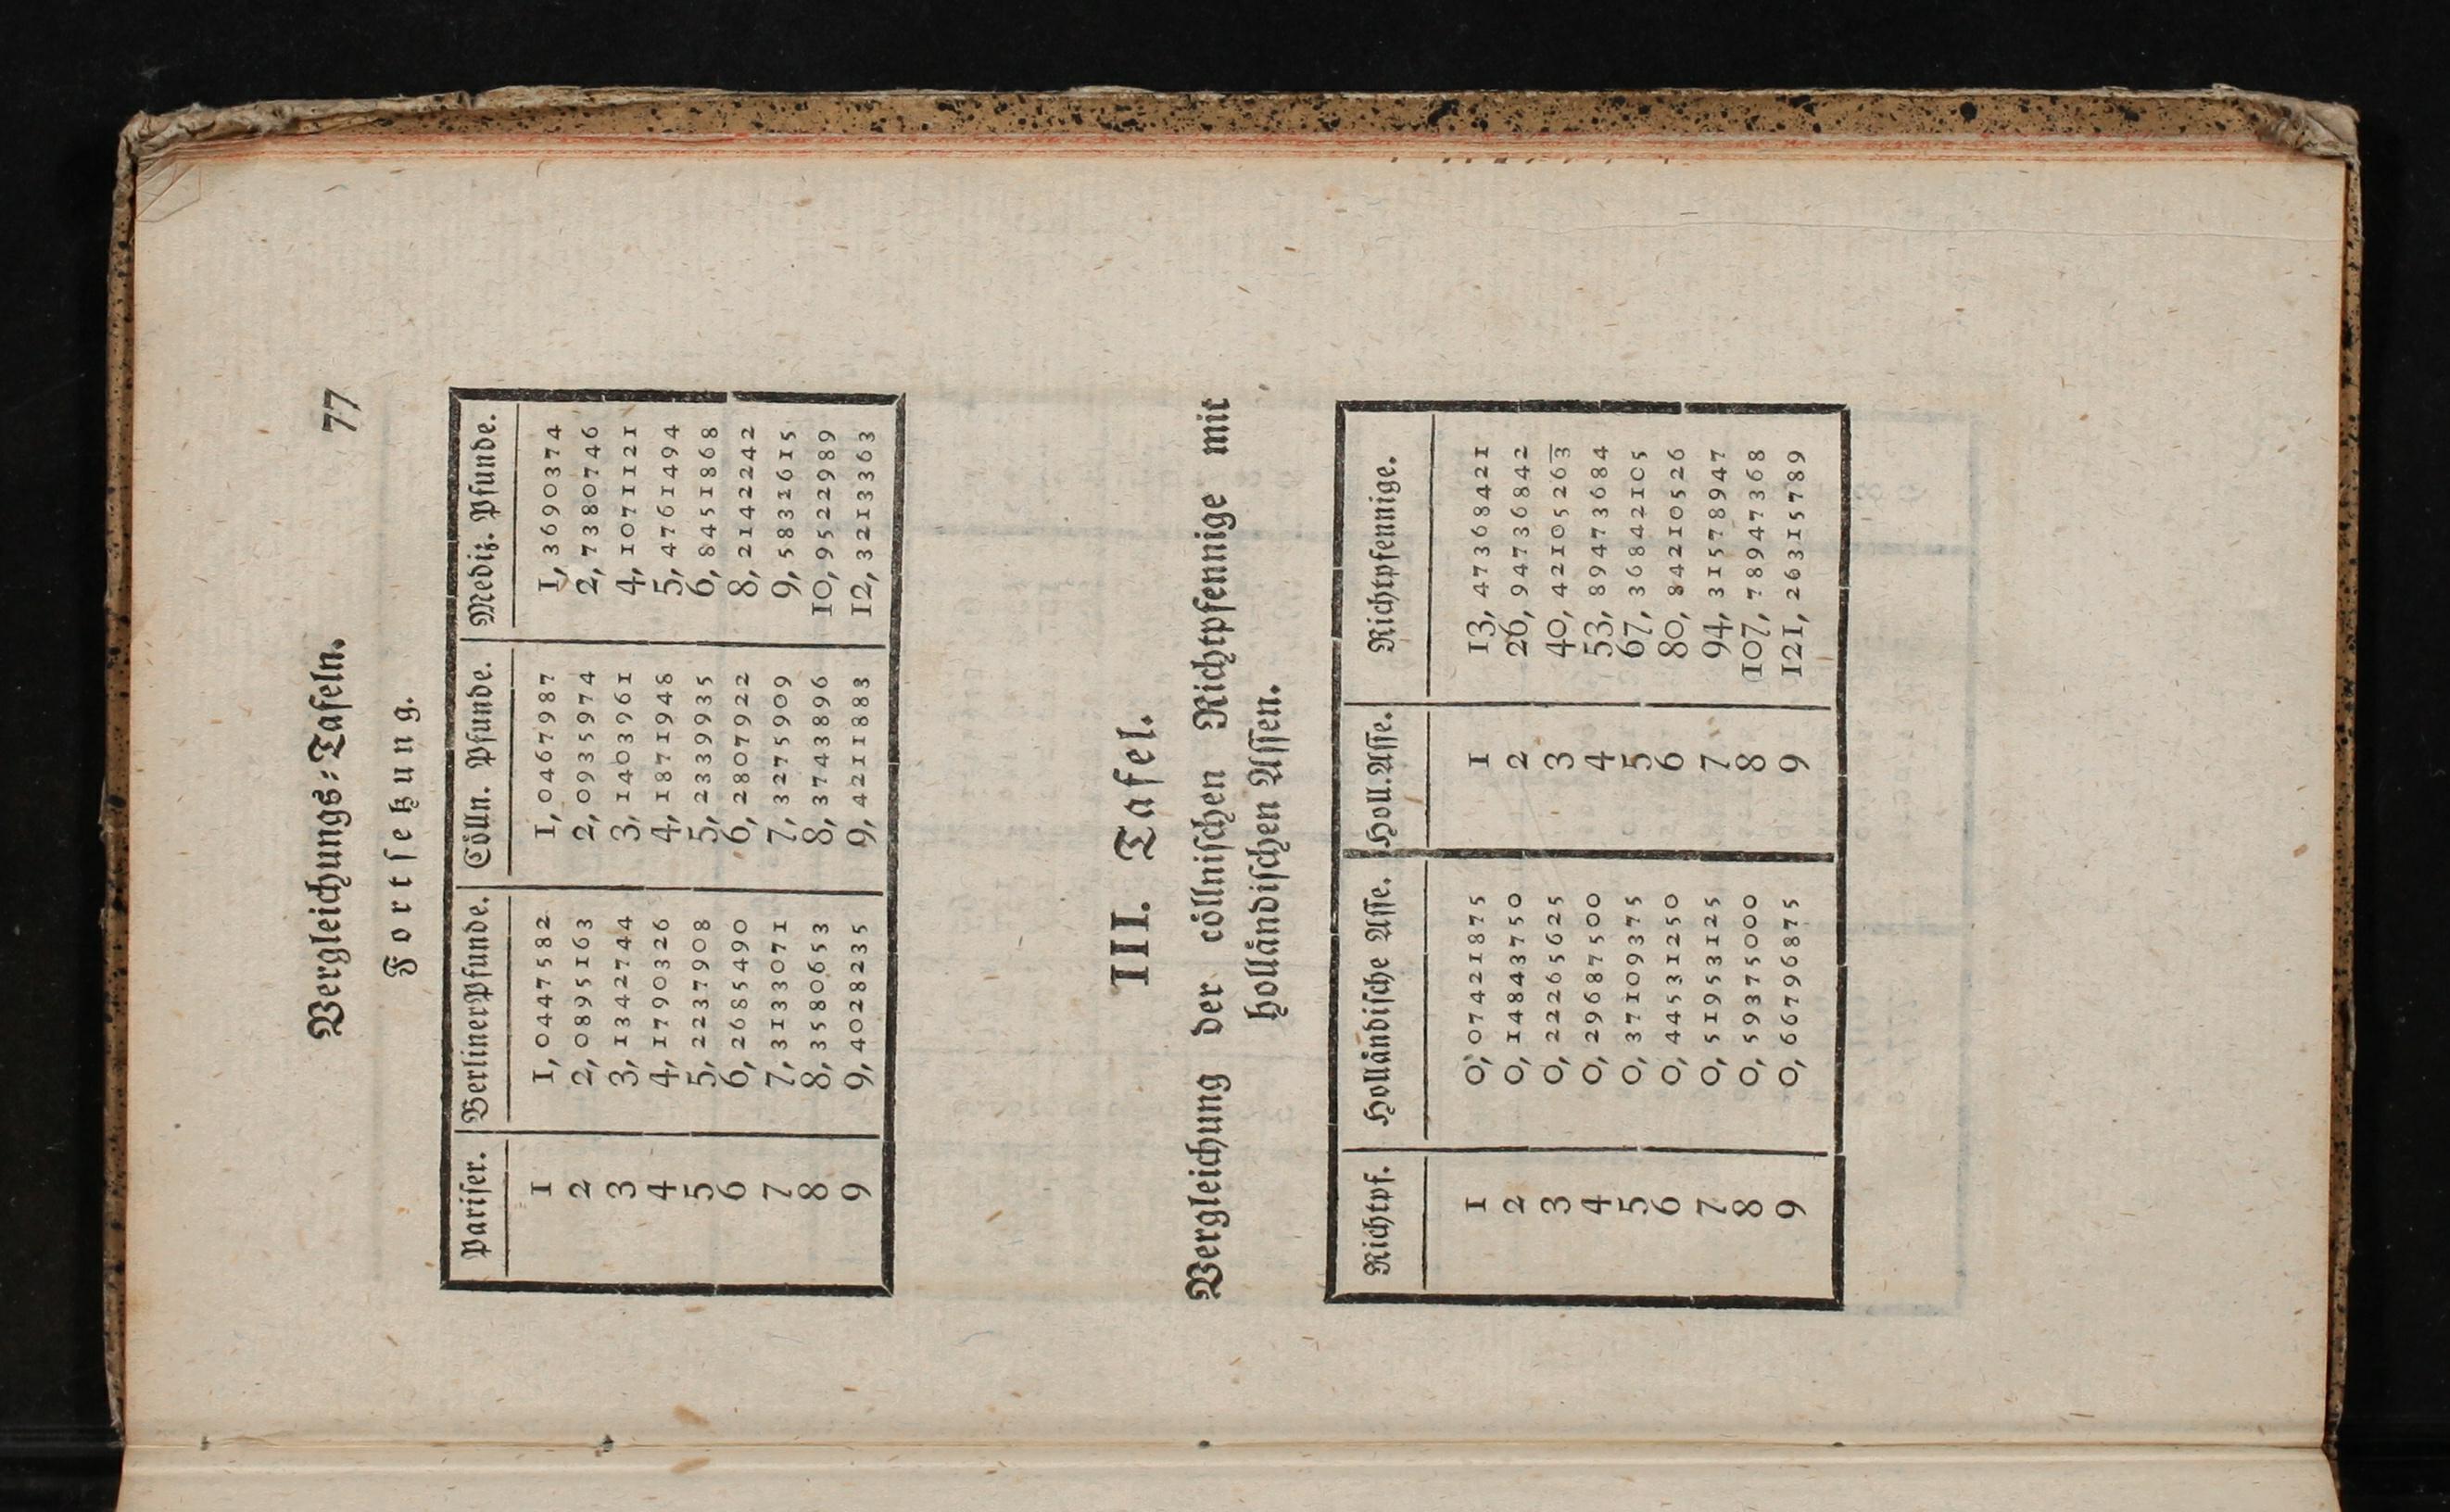 Vergleichungs-Tafeln. 77
Fortsetzung.
Pariser. Berliner Pfunde. Cölln. Pfunde. Mediz. Pfunde.
1 1,0447582 1,0467987 1,3690374
2 2,0895163 2,0935974 2,7380746
3 3,1342744 3,1403961 4,1071121
4 4,1790326 4,1871948 5,4761494
5 5,2237908 5,2339935 6,8451868
6 6,2685490 6,2807922 8,2142242
7 7,3133071 7,3275909 9,5832615
8 8,3580653 8,3743896 10,9522989
9 9,4028235 9,4211883 12,3213363
III. Tafel.
Vergleichung der cöllnischen Richtpfennige mit
holländischen Assen.
Richtpf. Holländische Asse. Holl. Asse. Richtpfennige.
1 0,07421875 1 13,47368421
2 0,14843750 2 26,94736842
3 0,22265625 3 40,42105263
4 0,29687500 4 53,89473684
5 0,37109375 5 67,36842105
6 0,44531250 6 80,84210526
7 0,51953125 7 94,31578947
8 0,59375000 8 107,78947368
9 0,66796875 9 121,26315789